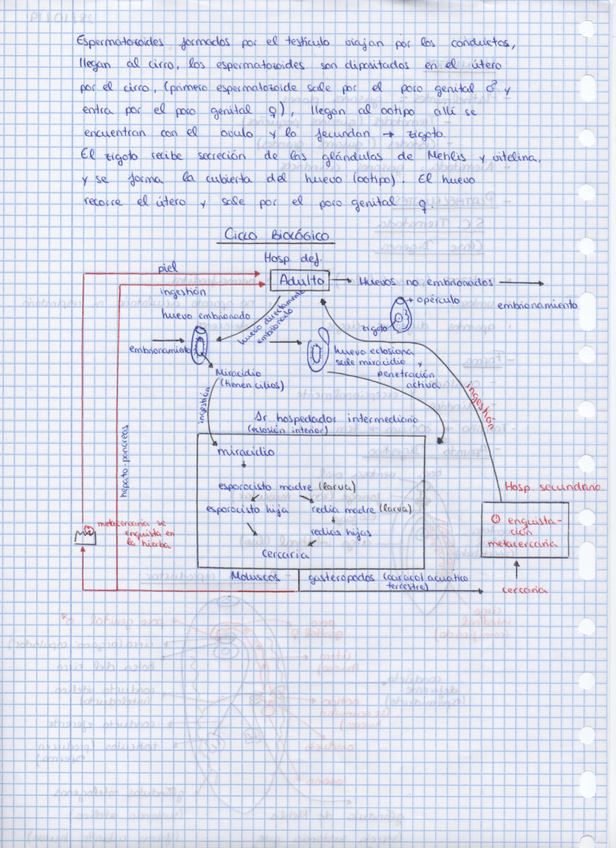 Espermatozoides formados por el testículo viajan por los conductos,
llegan al cirro, los espermatozoides son dipositados en el útero
por el cirro, (primero espermatozoide sale por el poro genital ♂ y
entra por el poro genital ♀), llegan al ootipo allí se
encuentran con el ovulo y lo fecundan → zigoto
El zigoto recibe secreción de las glándulas de Mehlis y vitelina,
y se forma la cubierta del huevo (ootipo). El huevo
recorre el útero y sale por el poro genital ♀.
Ciclo Biológico
Hosp def.
piel
Adulto → Huevos no embrionados →
ingestión
embrionamiento
huevo embrionado
huevo directamente embrionado
opérculo
zigoto
embrionamiento
huevo eclosiona
sale miracidio y
penetración
activa
Miracidio
(tienen cilios)
ingestión
ingestión
hepato pancreas
1r hospedador intermediario
(eclosión interior)
miracidio
esporocisto madre (larva)
esporocisto hija
redia madre (larva)
redias hijas
cercaria
Moluscos gasterópodos (caracol acuático
terrestre)
Hosp. secundario
enquista-
ción
metacercaria
cercaria
metacercaria se
enquista en
la hierba